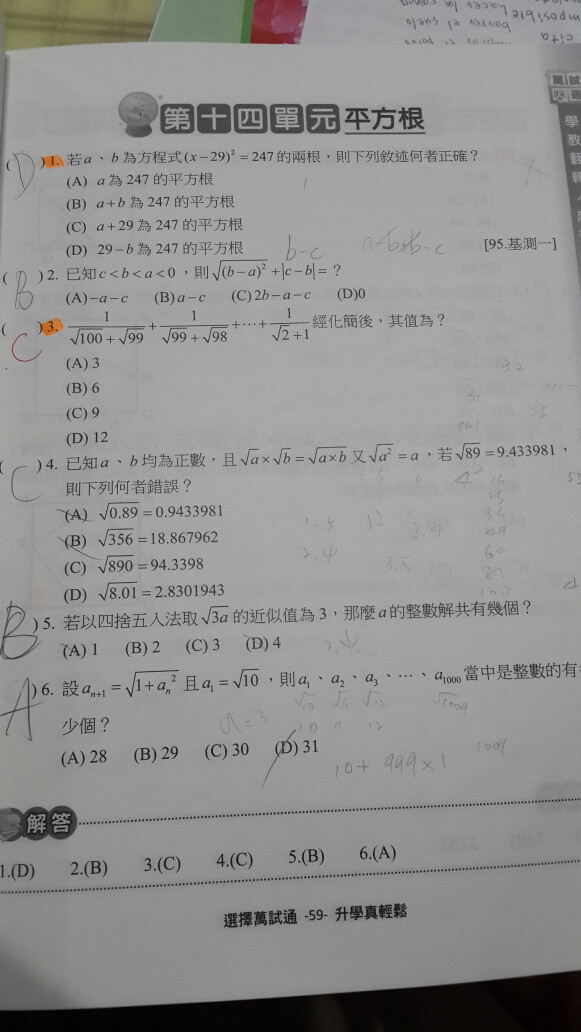 第十四單元 平方根
(D) 1. 若a、b為方程式(x－29)² = 247的兩根，則下列敘述何者正確？
(A) a為247的平方根
(B) a + b為247的平方根
(C) a + 29為247的平方根
(D) 29 − b為247的平方根
[95.基測一]
b-c
(B) 2. 已知c < b < a < 0，則√(b−a)² + |c−b| = ？
(A) −a−c (B) a−c (C) 2b−a−c (D)0
(C) 3. 1/(√100+√99) + 1/(√99+√98) + ⋯ + 1/(√2+1) 經化簡後，其值為？
(A) 3
(B) 6
(C) 9
(D) 12
(C) 4. 已知a、b均為正數，且√a×√b = √a×b 又√a² = a，若√89 = 9.433981，
則下列何者錯誤？
(A) √0.89 = 0.9433981
(B) √356 = 18.867962
(C) √890 = 94.3398
(D) √8.01 = 2.8301943
(B) 5. 若以四捨五入法取√3a的近似值為3，那麼a的整數解共有幾個？
(A) 1 (B) 2 (C) 3 (D) 4
(A) 6. 設aₙ₊₁ = √1+aₙ² 且a₁ = √10，則a₁、a₂、a₃、⋯、a₁₀₀₀當中是整數的有
√10 √11 √12 √1009
少個？
a=3
10 11 12
(A) 28 (B) 29 (C) 30 (D) 31
10+ 999×1
1009
解答
1.(D) 2.(B) 3.(C) 4.(C) 5.(B) 6.(A)
選擇萬試通 -59- 升學真輕鬆